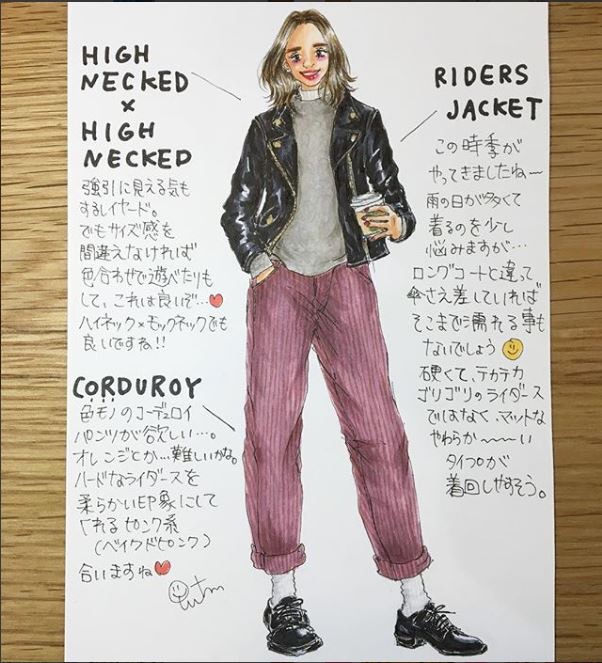 HIGH
NECKED
×
HIGH
NECKED
強引に見える気も
するレイヤード。
でもサイズ感を
間違えなければ
色合わせで遊べたりも
して、これは良いぞ…
ハイネック×モックネックでも
良いですね!!
CORDUROY
色モノのコーデュロイ
パンツが欲しい…。
オレンジとか…難しいかな。
ハードなライダースを
柔らかい印象にして
くれるピンク系
(ベイクドピンク)
合いますね
RIDERS
JACKET
この時季が
やってきましたね〜
雨の日が多くて
着るのを少し
悩みますが…
ロングコートと違って
傘さえ差していれば
そこまで濡れる事も
ないでしょう
硬くて、テカテカ
ゴリゴリのライダース
ではなく、マットな
やわらか〜〜〜い
タイプが
着回しやすそう。